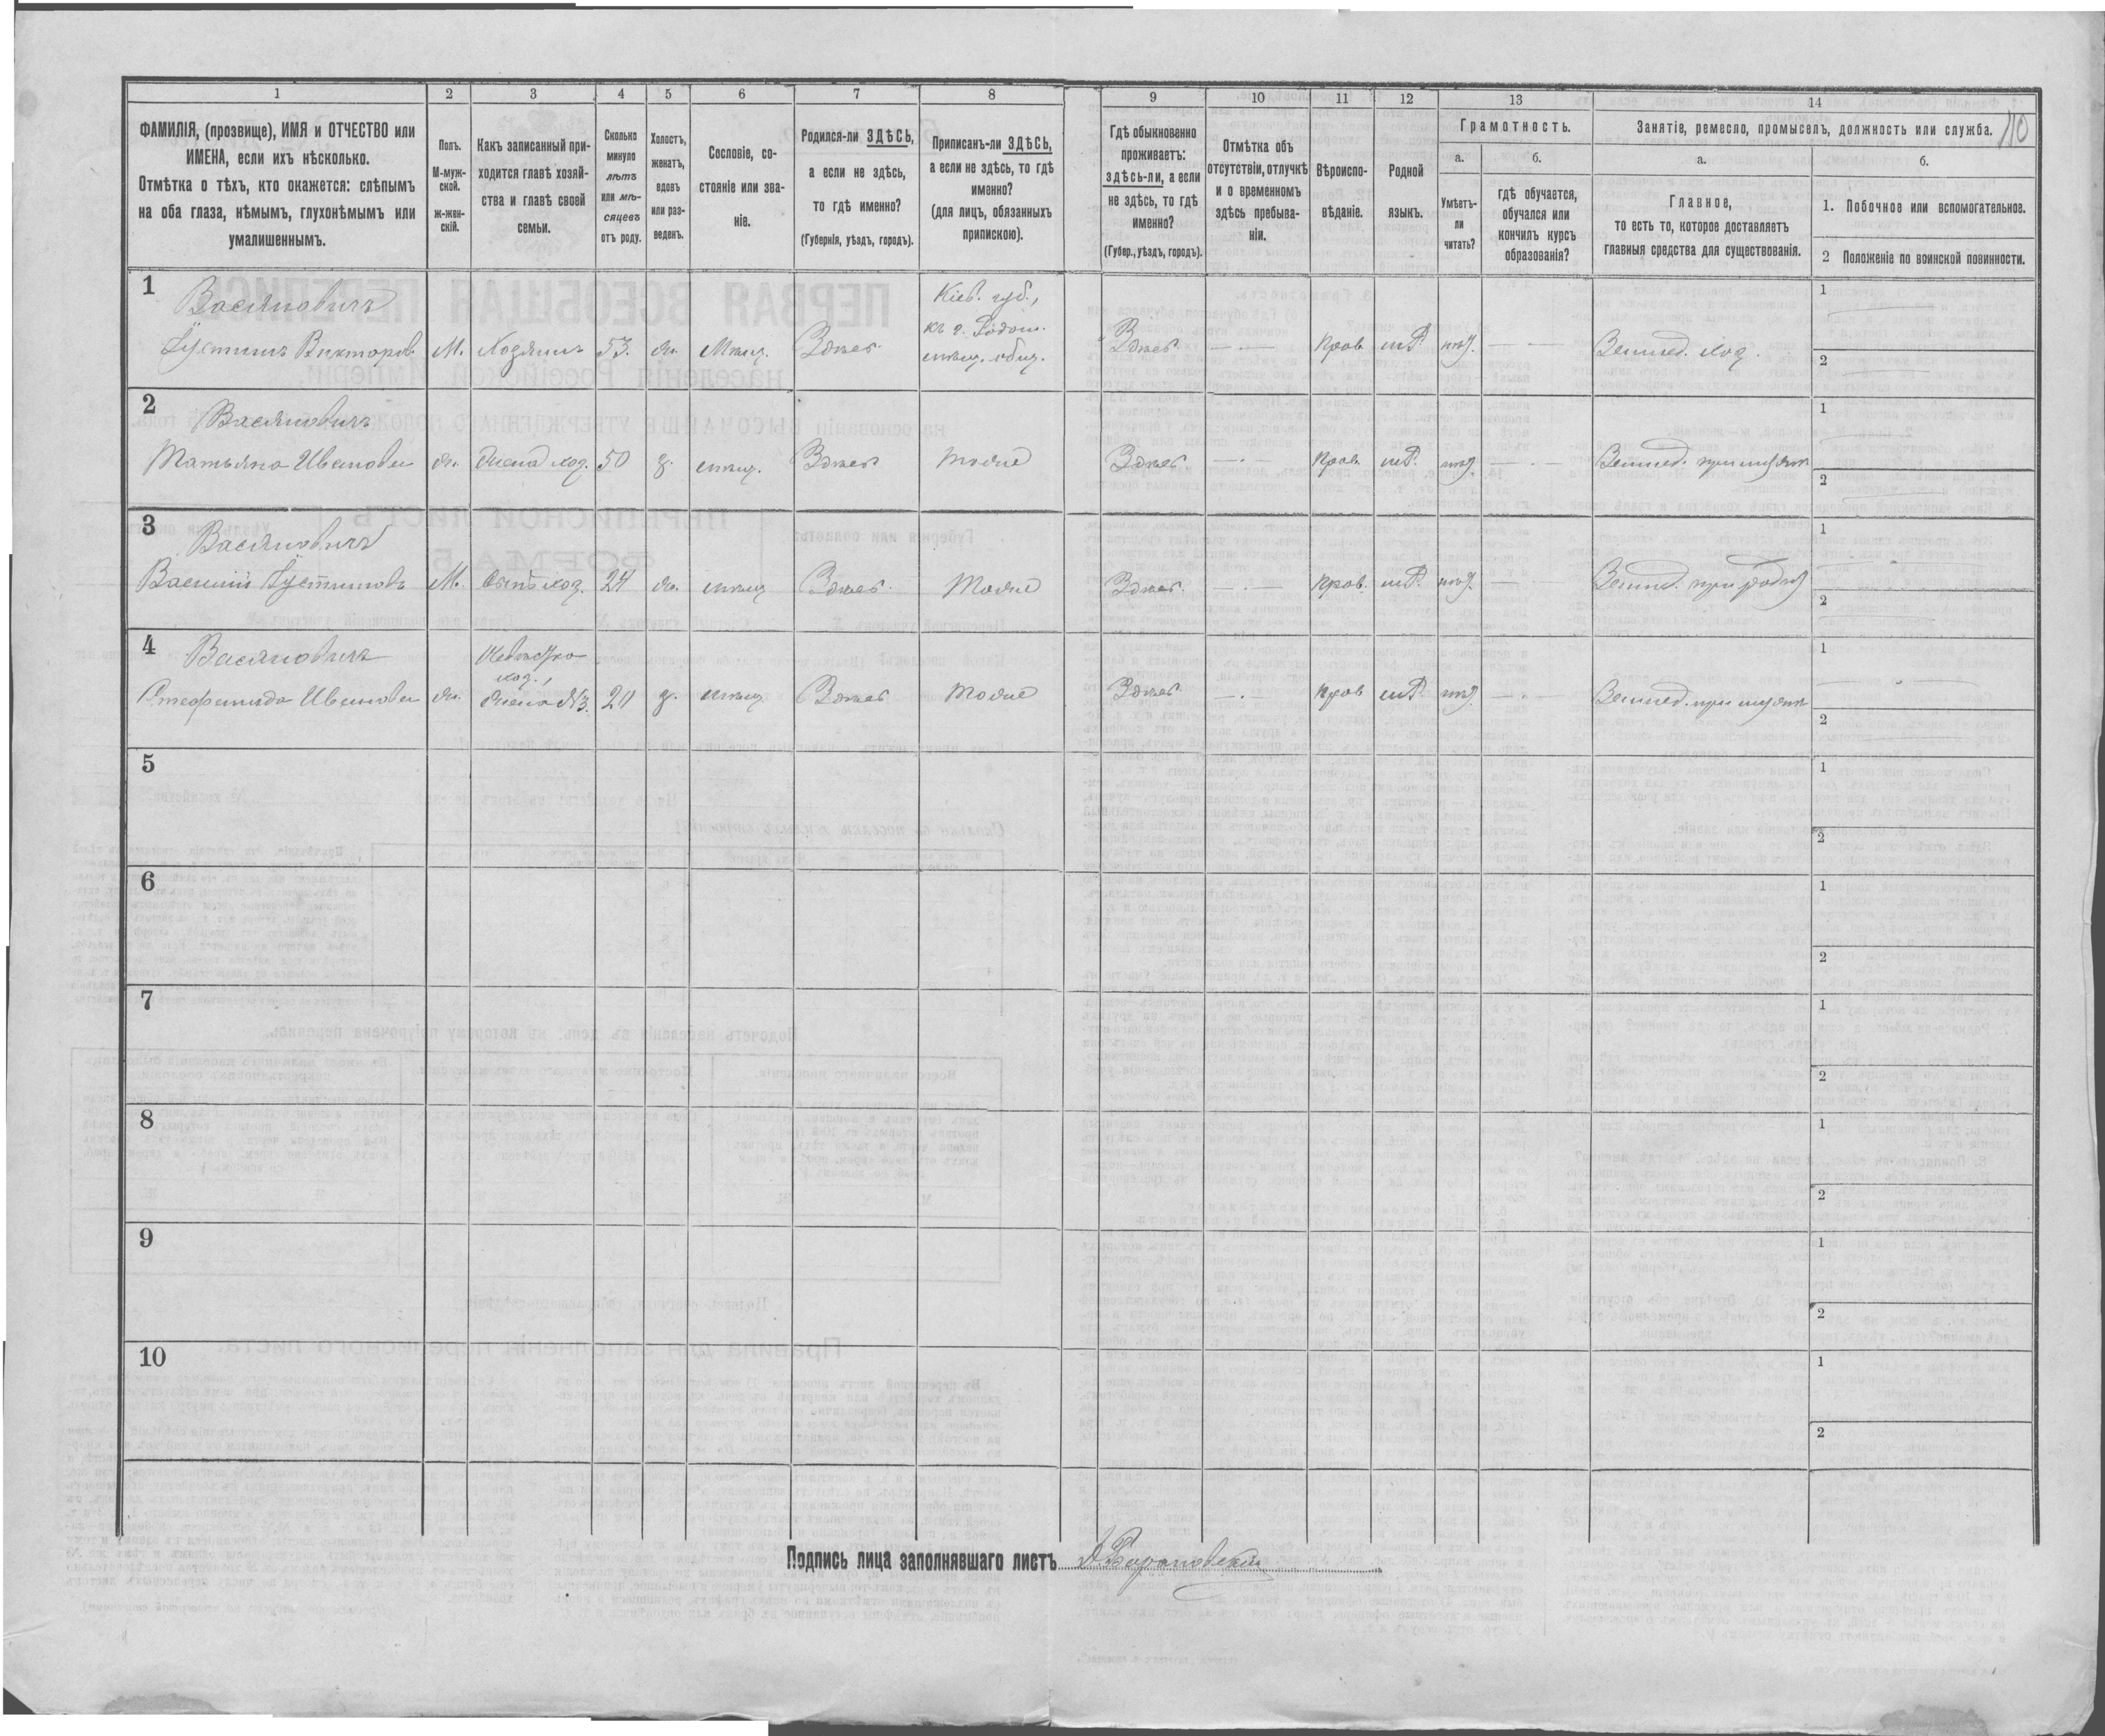 1 2 3 4 5 6 7 8 9 10 11 12 13 14
ФАМИЛІЯ, (прозвище), ИМЯ и ОТЧЕСТВО или
ИМЕНА, если ихъ нѣсколько.
Отмѣтка о тѣхъ, кто окажется: слѣпымъ
на оба глаза, нѣмымъ, глухонѣмымъ или
умалишеннымъ.
Полъ.
М-муж-
ской.
ж-жен-
скій.
Какъ записанный при-
ходится главѣ хозяй-
ства и главѣ своей
семьи.
Сколько
минуло
лѣтъ
или мѣ-
сяцевъ
отъ роду.
Холостъ,
женатъ,
вдовъ
или раз-
веденъ.
Сословіе, со-
стояніе или зва-
ніе.
Родился-ли ЗДѢСЬ,
а если не здѣсь,
то гдѣ именно?
(Губернія, уѣздъ, городъ).
Приписанъ-ли ЗДѢСЬ,
а если не здѣсь, то гдѣ
именно?
(для лицъ, обязанныхъ
припискою).
Гдѣ обыкновенно
проживаетъ:
здѣсь-ли, а если
не здѣсь, то гдѣ
именно?
(Губер., уѣздъ, городъ).
Отмѣтка объ
отсутствіи, отлучкѣ
и о временномъ
здѣсь пребыва-
ніи.
Вѣроиспо-
вѣданіе.
Родной
языкъ.
Грамотность.
а.
Умѣетъ-
ли
читать?
б.
гдѣ обучается,
обучался или
кончилъ курсъ
образованія?
Занятіе, ремесло, промыселъ, должность или служба.
110
а.
Главное,
то есть то, которое доставляетъ
главныя средства для существованія.
б.
1. Побочное или вспомогательное.
2 Положеніе по воинской повинности.
1
Васяновичъ
Іустинъ Викторов.
М. Хозяинъ 53. ж. Мѣщ. Здѣсь
Кіев. губ.,
къ г. Радом.
мѣщ. общ.
Здѣсь Прав. нѣт. Землед. хоз.
1
2
2
Васяновичъ
Татьяна Иванова
ж. Жена хоз. 50 з. мѣщ. Здѣсь Тоже Здѣсь Прав. нѣт Землед. при мужѣ
1
2
3
Васяновичъ
Василій Іустиновъ
М. Сынъ хоз. 24 ж. мѣщ Здѣсь Тоже Здѣсь Прав. нѣт. Землед. при
1
2
4
Васяновичъ
Стефанида Иванова
ж.
Невѣстка
хоз.,
жена №3.
20 з. мѣщ. Здѣсь Тоже Здѣсь Прав нѣт Землед. при мужѣ
1
2
5
1
2
6
1
2
7
1
2
8
1
2
9
1
2
10
1
2
Подпись лица заполнявшаго листъ